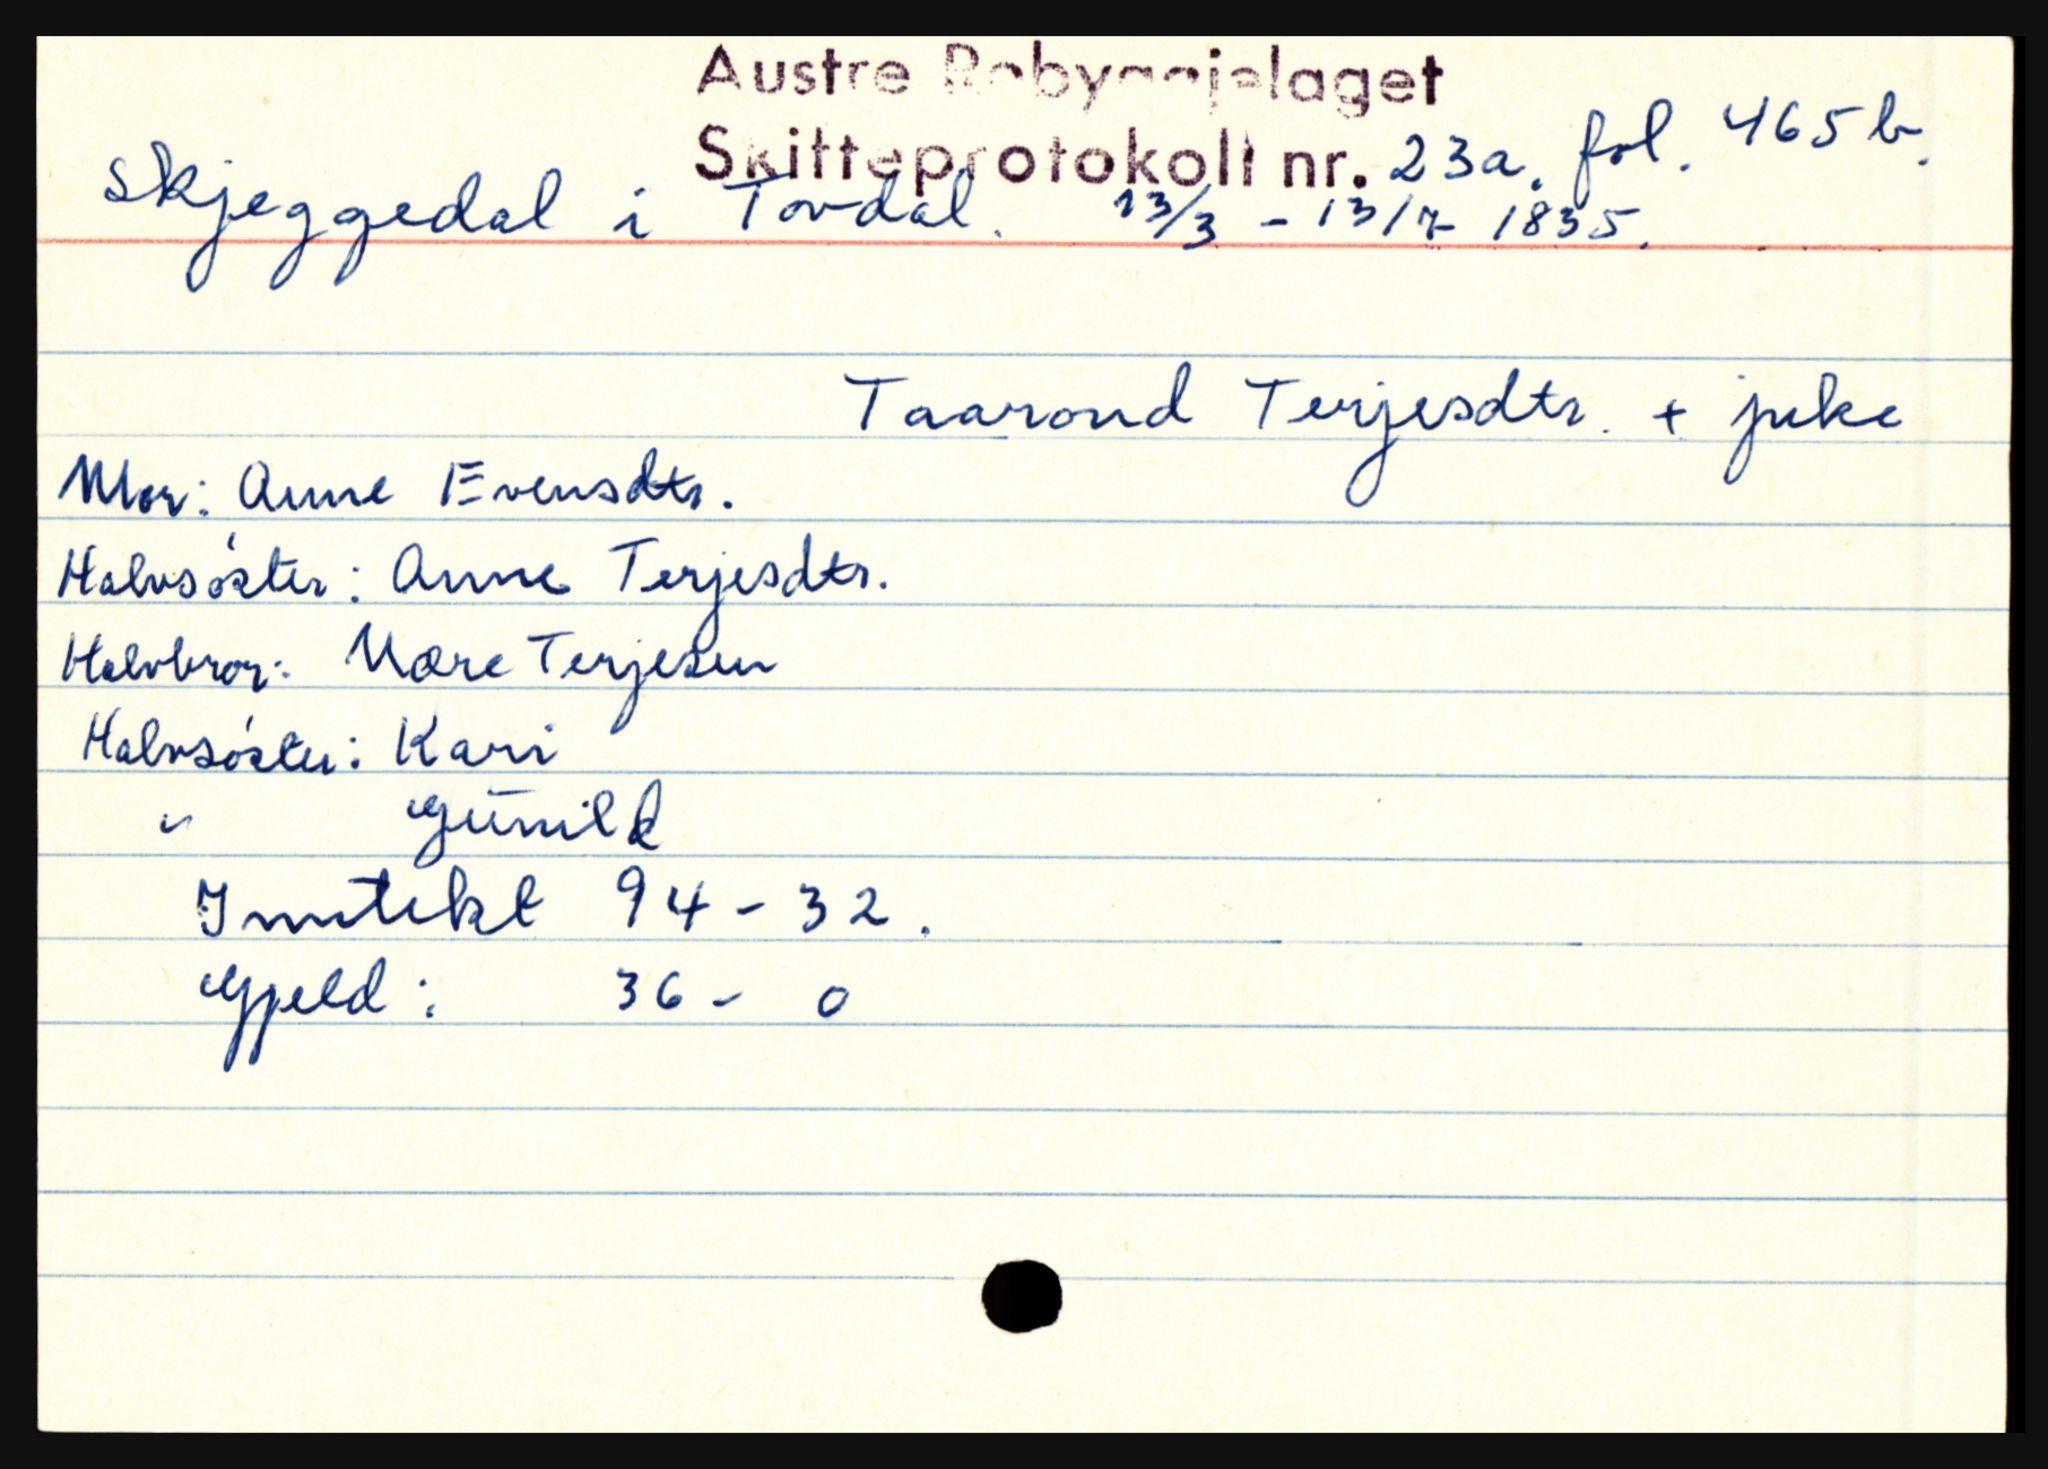 Austre Robyggjelaget
Skifteprotokoll nr. 23a. fol. 465 b.
Skjeggedal i Tovdal. 13/3 - 13/7 1835.
Taarond Terjesdtr. + pike
Mor: Anne Evensdtr.
Halvsøster: Anne Terjesdtr.
Halvbror: Terjesen
Halvsøster: Kari
" Gunild
Inntekt 94 - 32.
Gjeld: 36 - 0